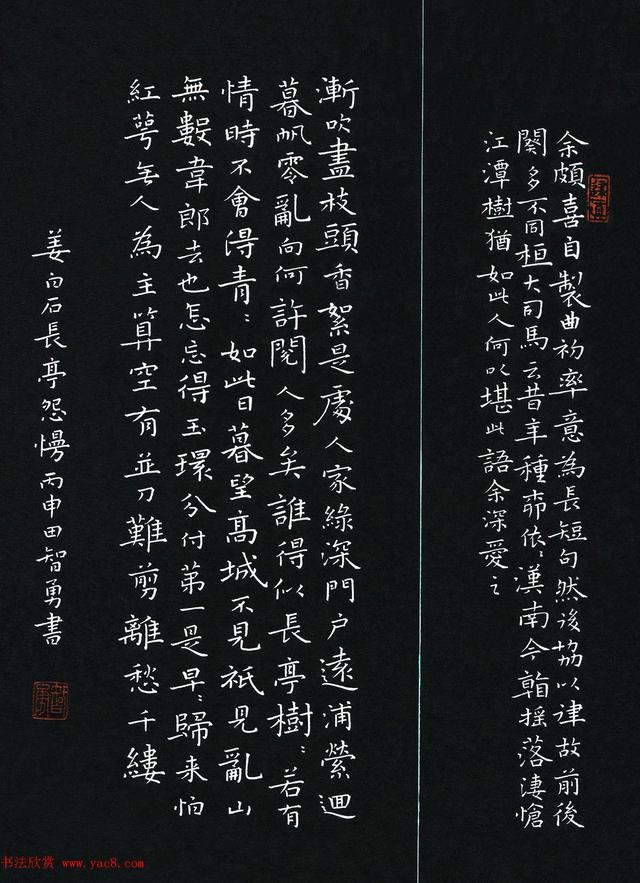 余頗喜自製曲初率意為長短句然後協以律故前後
闋多不同桓大司馬云昔年種柳依：漢南今翰搖落淒愴
江潭樹猶如此人何以堪此語余深愛之
漸吹盡枝頭香絮是處人家綠深門户遠浦縈迴
暮帆零亂向何許閱人多矣誰得似長亭樹：若有
情時不會得青：如此日暮望高城不見祇見亂山
無數韋郎去也怎忘得玉環分付第一是早：歸来怕
紅萼無人為主算空有並刀難剪離愁千縷
姜白石長亭怨慢丙申田智勇書
智勇
书法欣赏 www.yac8.com